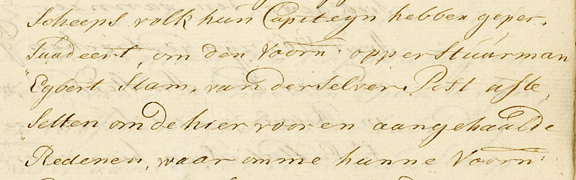 Scheeps volk hun Capiteyn hebben geper,
suadeert, om den Voorn: opperstuurman
"Egbert Stam, van derselver Post afte,
setten om de hier vooren aangehaalde
"Redenen, waar omme hunne Voorn: